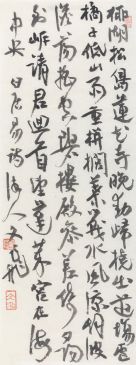 柳湖松島蓮花寺晚動歸橈出道場盧
橘子低山雨重栟櫚葉戰水風涼煙波
澹蕩搖空碧樓殿參差倚夕陽
到岸請君回首望蓬萊宮在海
中央 白居易詩